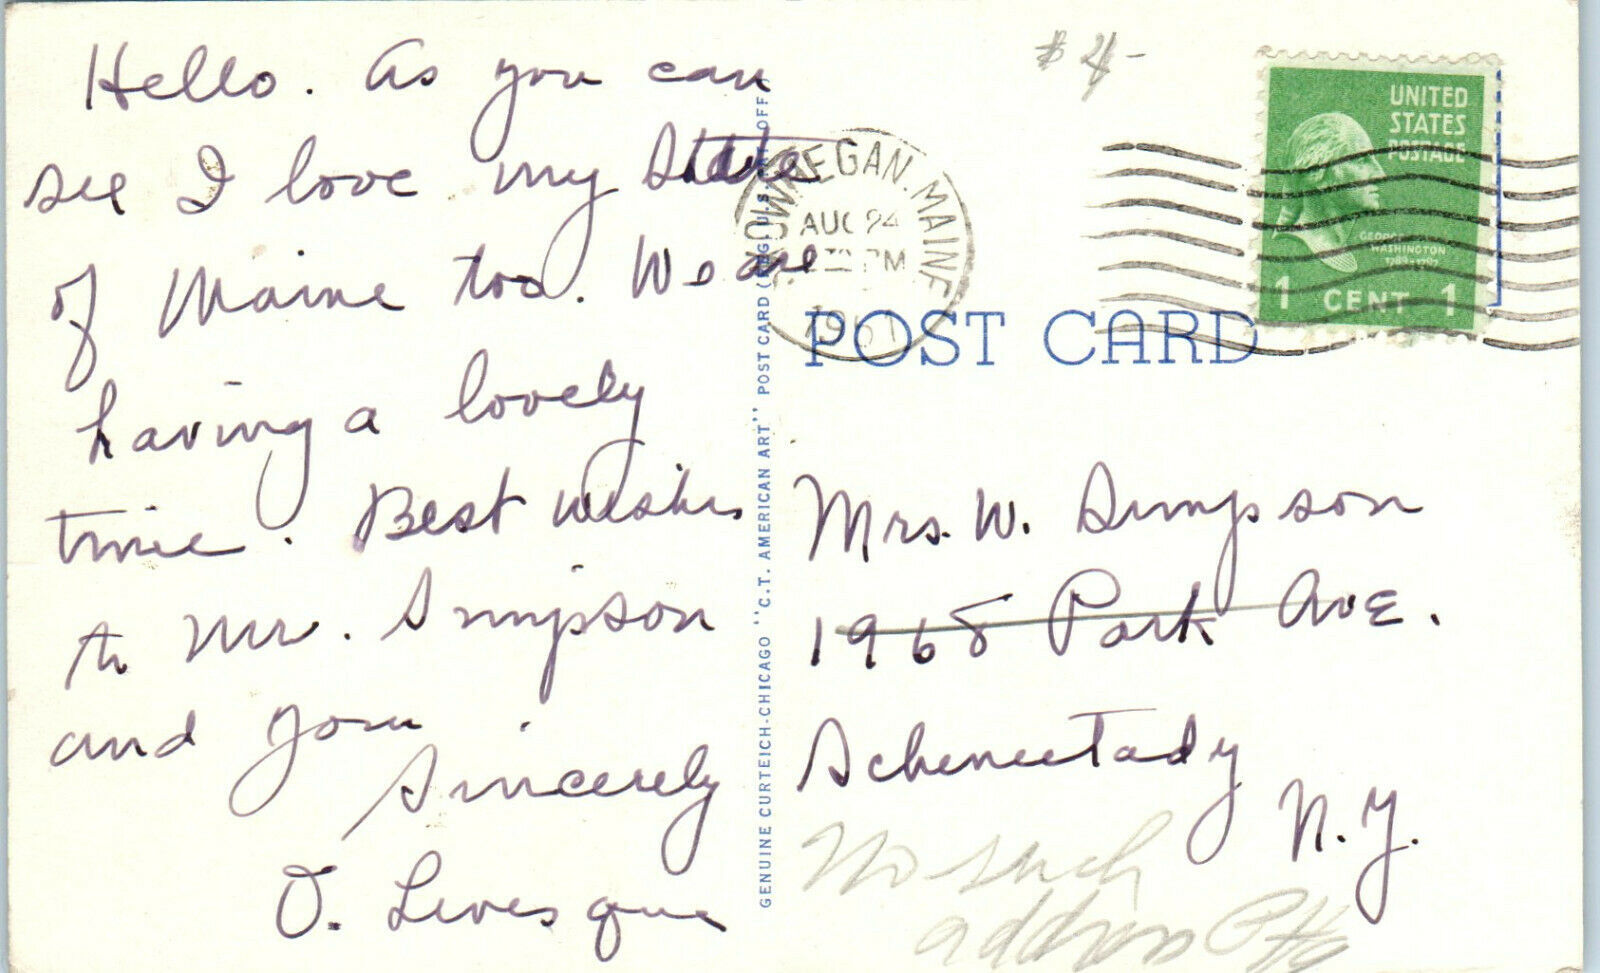 Hello. As you can
see I love my State
of Maine too. We are
having a lovely
time. Best wishes
to Mr. Simpson
and you
Sincerely
O. Levesque
GENUINE CURTEICH-CHICAGO "C.T. AMERICAN ART" POST CARD (REG. U.S. PAT. OFF.)
$4-
SKOWHEGAN. MAINE
AUG 24
PM
1951
UNITED
STATES
POSTAGE
GEORGE
WASHINGTON
1789-1797
1 CENT 1
POST CARD
Mrs. W. Simpson
1968 Park Ave.
Schenectady
N.Y.
No such
address